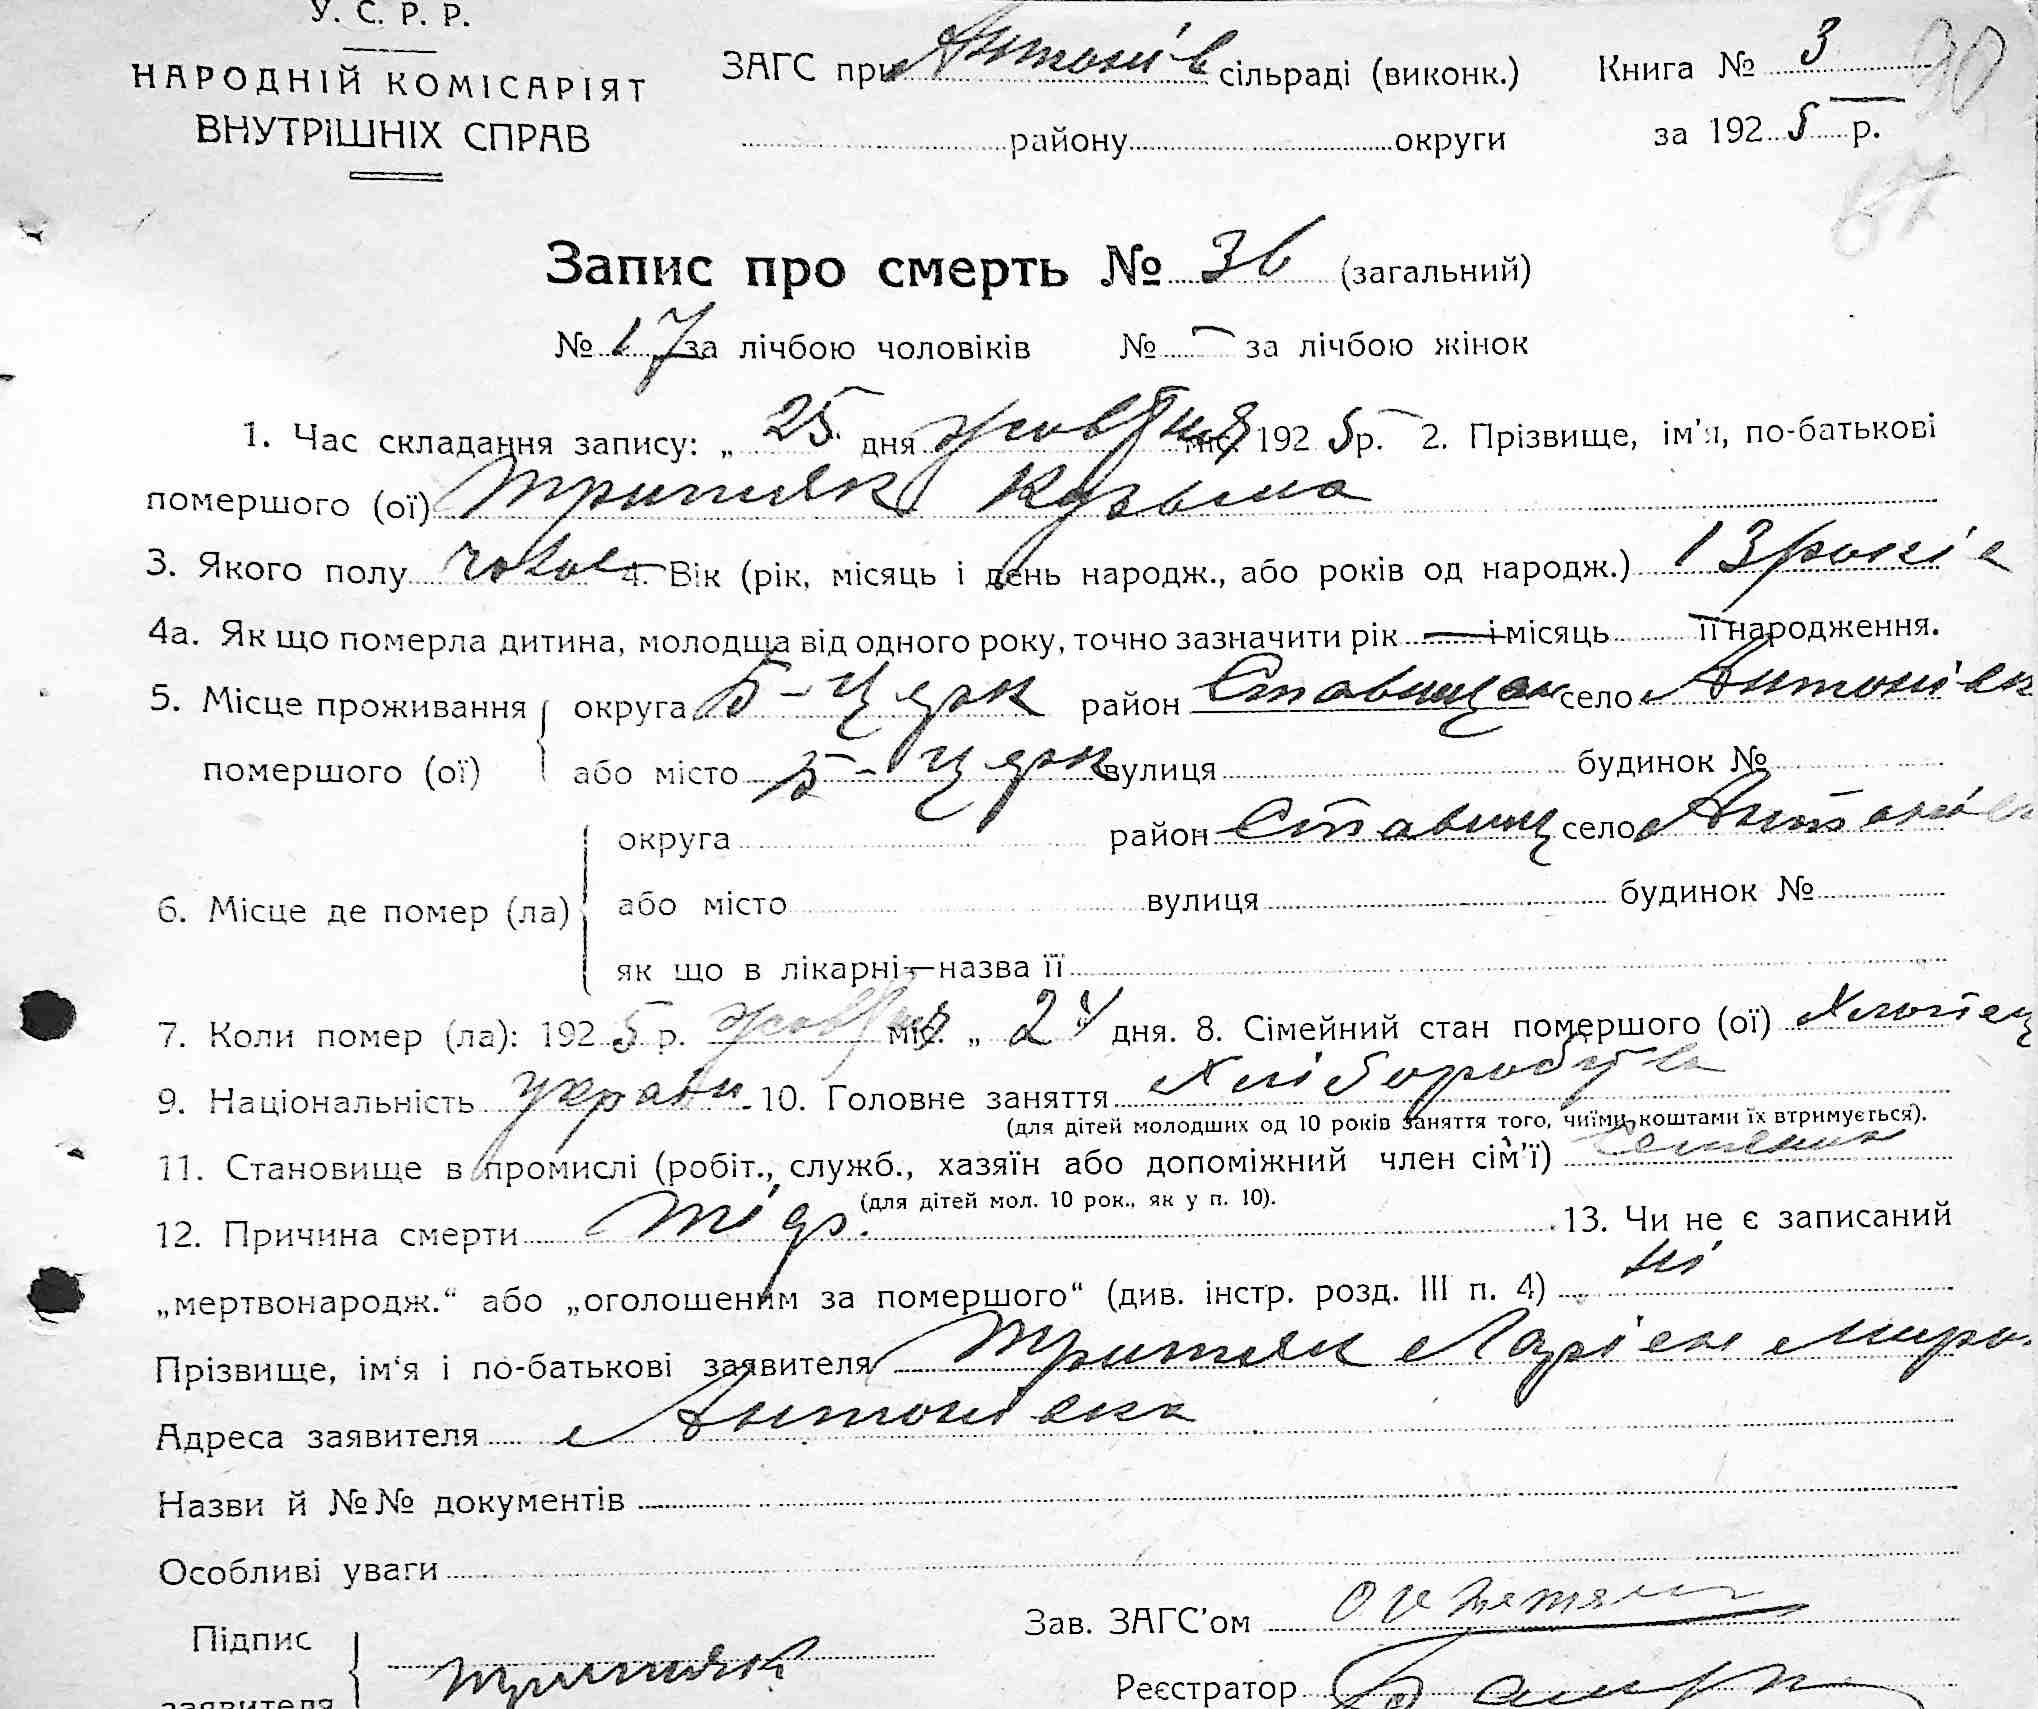 У. С. Р. Р.
НАРОДНІЙ КОМІСАРІЯТ
ВНУТРІШНІХ СПРАВ
ЗАГС при Антонів сільраді (виконк.)
району округи
Книга № 3
за 192 5 р.
90
67
Запис про смерть № 36 (загальний)
№ 17 за лічбою чоловіків № — за лічбою жінок
1. Час складання запису: „ 25 дня жовтня міс. 192 5 р. 2. Прізвище, ім'я, по-батькові
помершого (ої) Притяк Кузьма
3. Якого полу чолов 4. Вік (рік, місяць і день народж., або років од народж.) 13 років
4а. Як що померла дитина, молодща від одного року, точно зазначити рік — і місяць її народження.
5. Місце проживання помершого (ої) округа Б-Церк район Ставищан село Антонівк
або місто Б-Церк вулиця будинок №
6. Місце де помер (ла) округа район Ставищ село Антонів
або місто вулиця будинок №
як що в лікарні—назва її
7. Коли помер (ла): 192 5 р. жовтня міс. „ 24 дня. 8. Сімейний стан помершого (ої) Хлопец
9. Національність україн. 10. Головне заняття Хліборобств
(для дітей молодших од 10 років заняття того, чиїми коштами їх втримується).
11. Становище в промислі (робіт., служб., хазяїн або допоміжний член сім'ї)
(для дітей мол. 10 рок., як у п. 10).
12. Причина смерти 13. Чи не є записаний
„мертвонародж.“ або „оголошеним за помершого“ (див. інстр. розд. III п. 4) ні
Прізвище, ім'я і по-батькові заявителя Притяк Ларівон Миро
Адреса заявителя Антонівка
Назви й №№ документів
Особливі уваги
Підпис
заявителя Притяк
Зав. ЗАГС'ом
Реєстратор